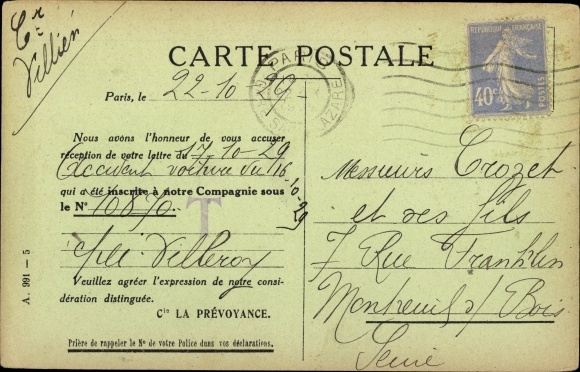 Cr
Villién
CARTE POSTALE
Paris, le 22-10 29
Nous avons l'honneur de vous accuser
réception de votre lettre du 17-10-29
Accident voiture du 16-10-29
qui a été inscrite à notre Compagnie sous
le N° 10870.
T
Villeroy
Veuillez agréer l'expression de notre consi-
dération distinguée.
Cie LA PRÉVOYANCE.
Prière de rappeler le N° de votre Police dans vos déclarations.
A. 991 - 5
PARIS
ST LAZARE
REPUBLIQUE FRANÇAISE
40c
POSTES
Messieurs Crozet
et ses fils
7 Rue Franklin
Montreuil s/ Bois
Seine